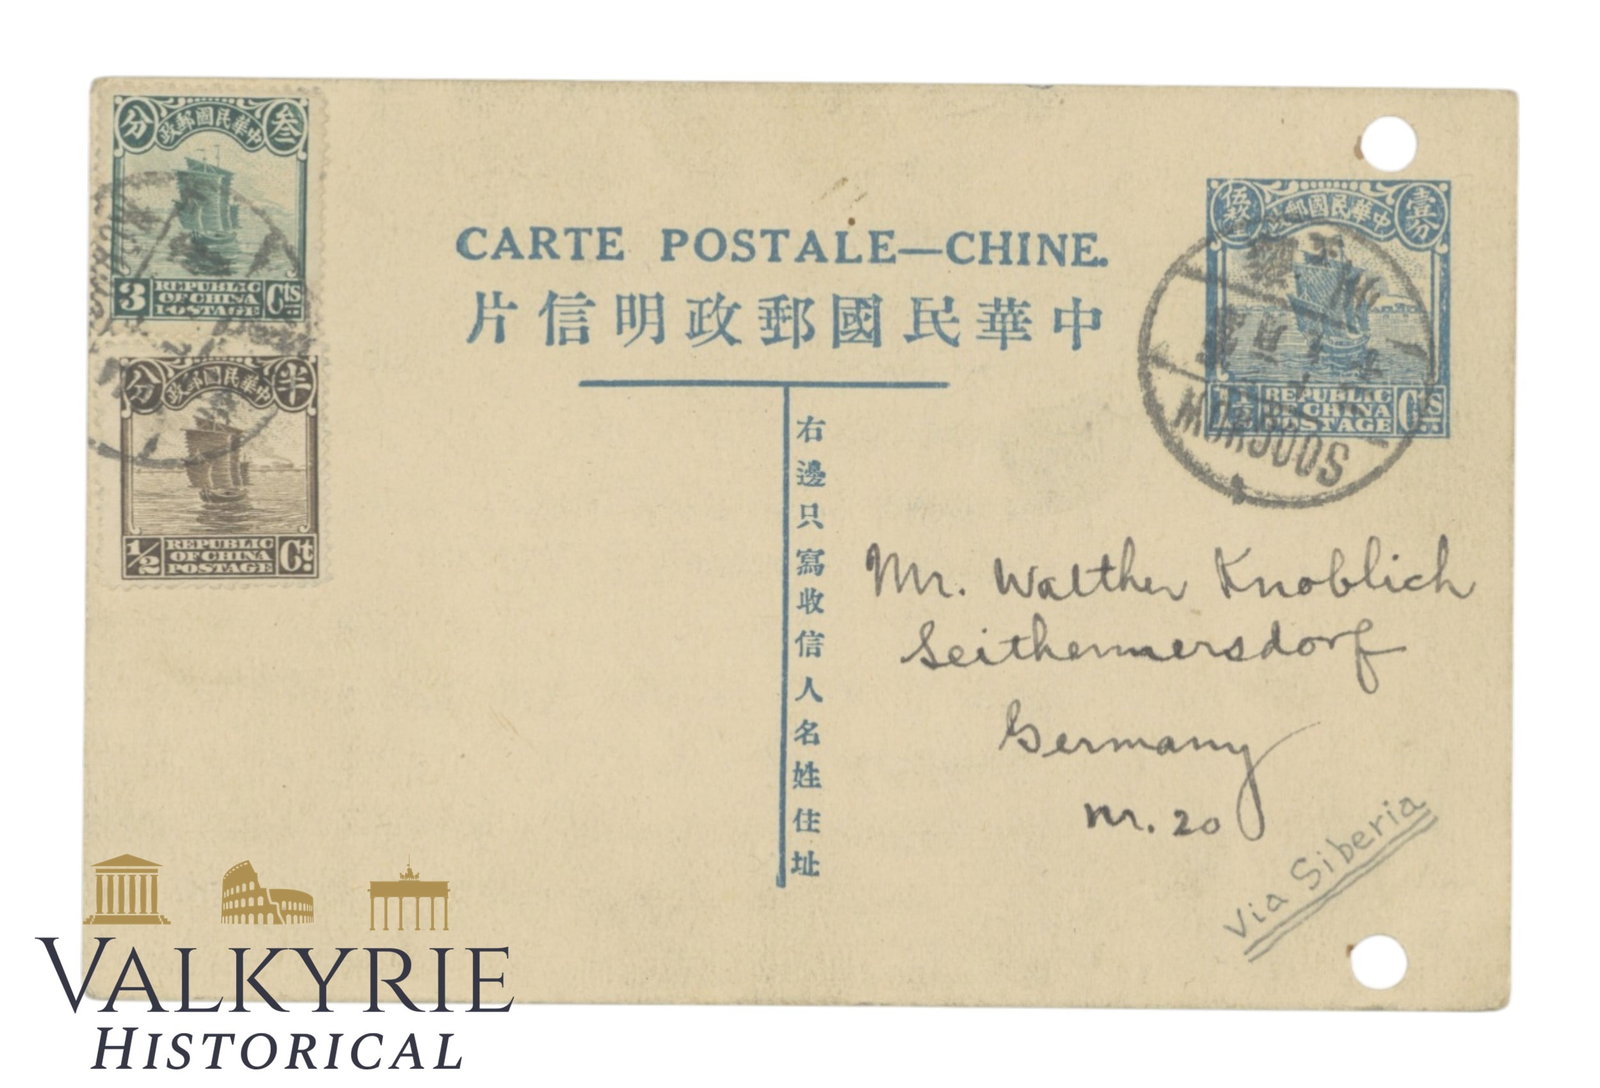 分 叁
政郵國民華中
3 REPUBLIC Cts
OF CHINA
POSTAGE
分 半
政郵國民華中
1/2 REPUBLIC Ct.
OF CHINA
POSTAGE
CARTE POSTALE—CHINE.
片信明政郵國民華中
伍釐 壹分
郵國民華中
1½ REPUBLIC Cts
OF CHINA
POSTAGE
SOOCHOW
右邊只寫收信人名姓住址
Mr. Walther Knoblich
Seithennersdorf
Germany
Nr. 20
Via Siberia
VALKYRIE
HISTORICAL